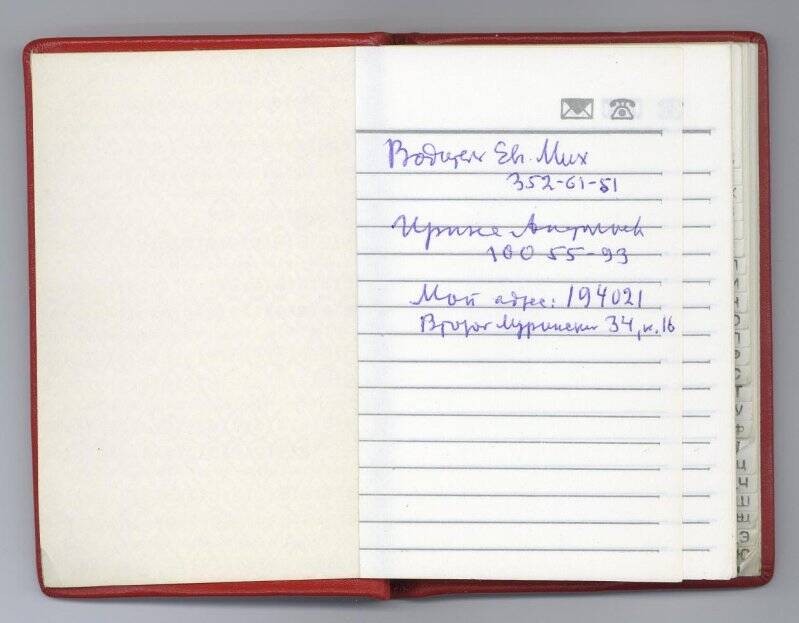 Водител Ев. Мих
352-61-51
Ирина Анатольев
100 55-93
Мой адрес: 194021
Второй Муринский 34, к. 16
У
Ц
Ч
Ш
Щ
Э
Ю